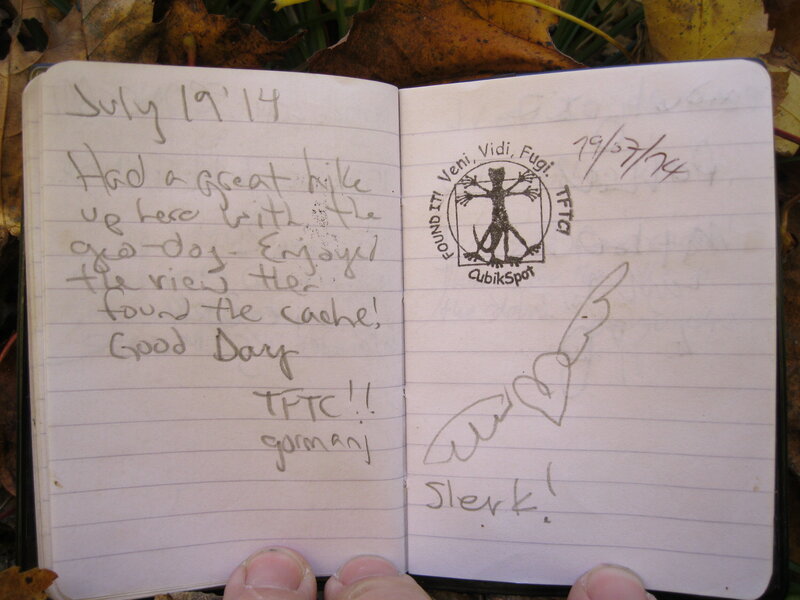 July 19 '14
Had a great hike
up here with the
geo-dog. Enjoyed
the view then
found the cache!
Good Day
TFTC!!
gormanj
FOUND IT! Veni, Vidi, Fugi. TFTC!
CubikSpot
19/07/14
Slerk!